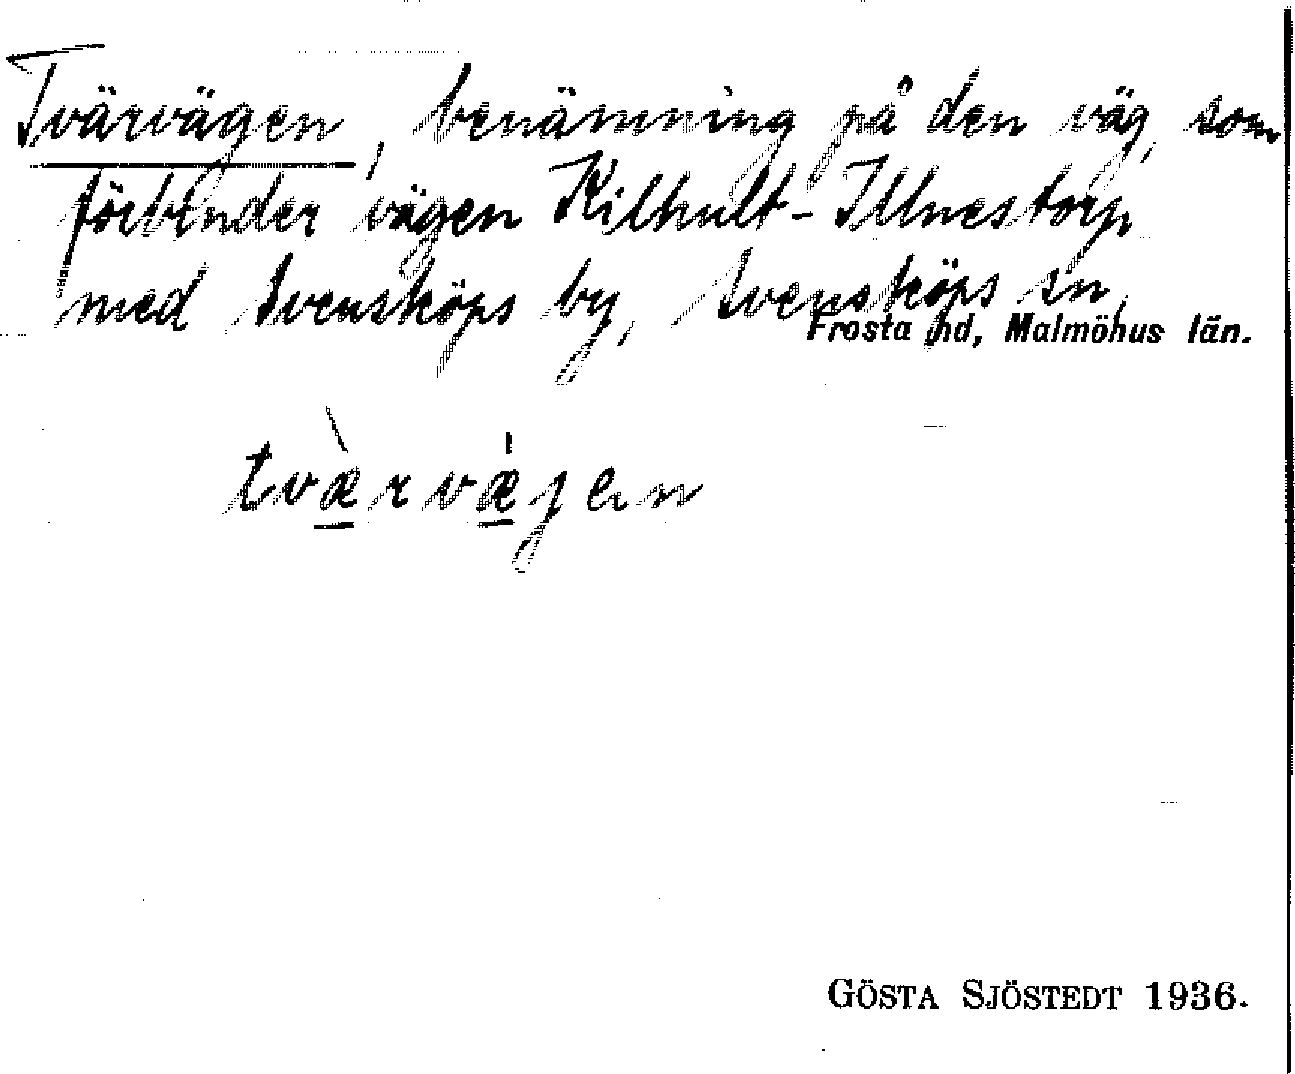 Tvärvägen, benämning på den väg, som
förbinder vägen Kilhult-Illnestorp
med Svensköps by, Svensköps sn,
Frosta hd, Malmöhus län.
tvæ̀rvæ̍jen
GÖSTA SJÖSTEDT 1936.